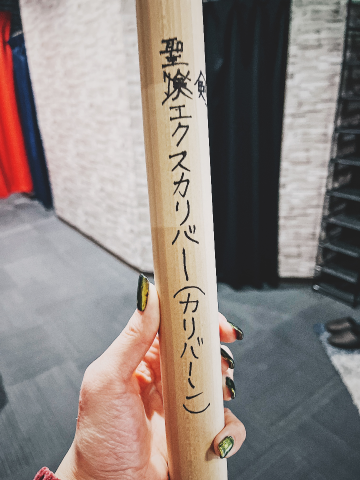 聖剣エクスカリバー(カリバーン)